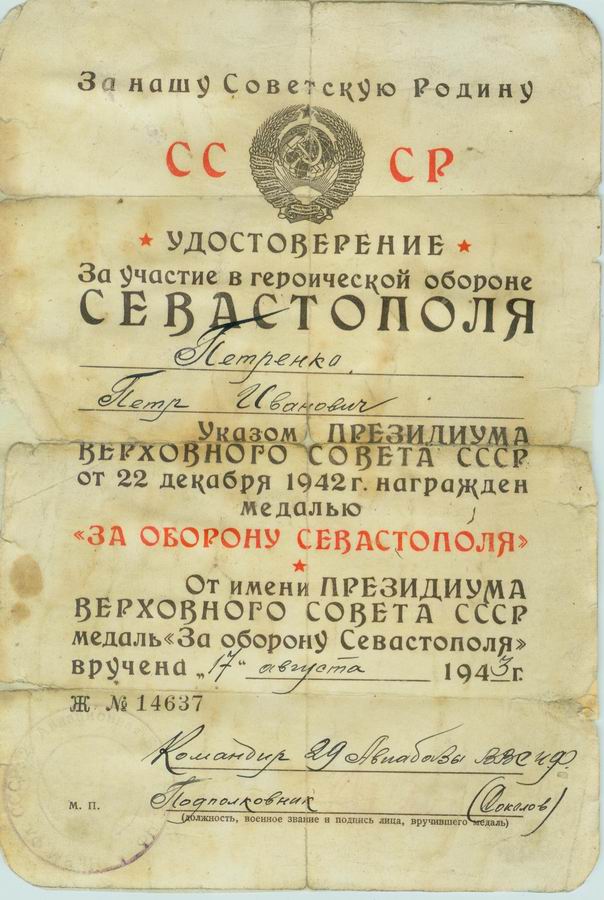 За нашу Советскую Родину
СС СР
УДОСТОВЕРЕНИЕ
За участие в героической обороне
СЕВАСТОПОЛЯ
Петренко
Петр Иванович
Указом ПРЕЗИДИУМА
ВЕРХОВНОГО СОВЕТА СССР
от 22 декабря 1942 г. награжден
медалью
«ЗА ОБОРОНУ СЕВАСТОПОЛЯ»
От имени ПРЕЗИДИУМА
ВЕРХОВНОГО СОВЕТА СССР
медаль «За оборону Севастополя»
вручена „17“ августа 1943 г.
Ж № 14637
Командир 29 Авиабазы ВВС ЧФ
Подполковник (Соколов)
м. п.
(должность, военное звание и подпись лица, вручившего медаль)